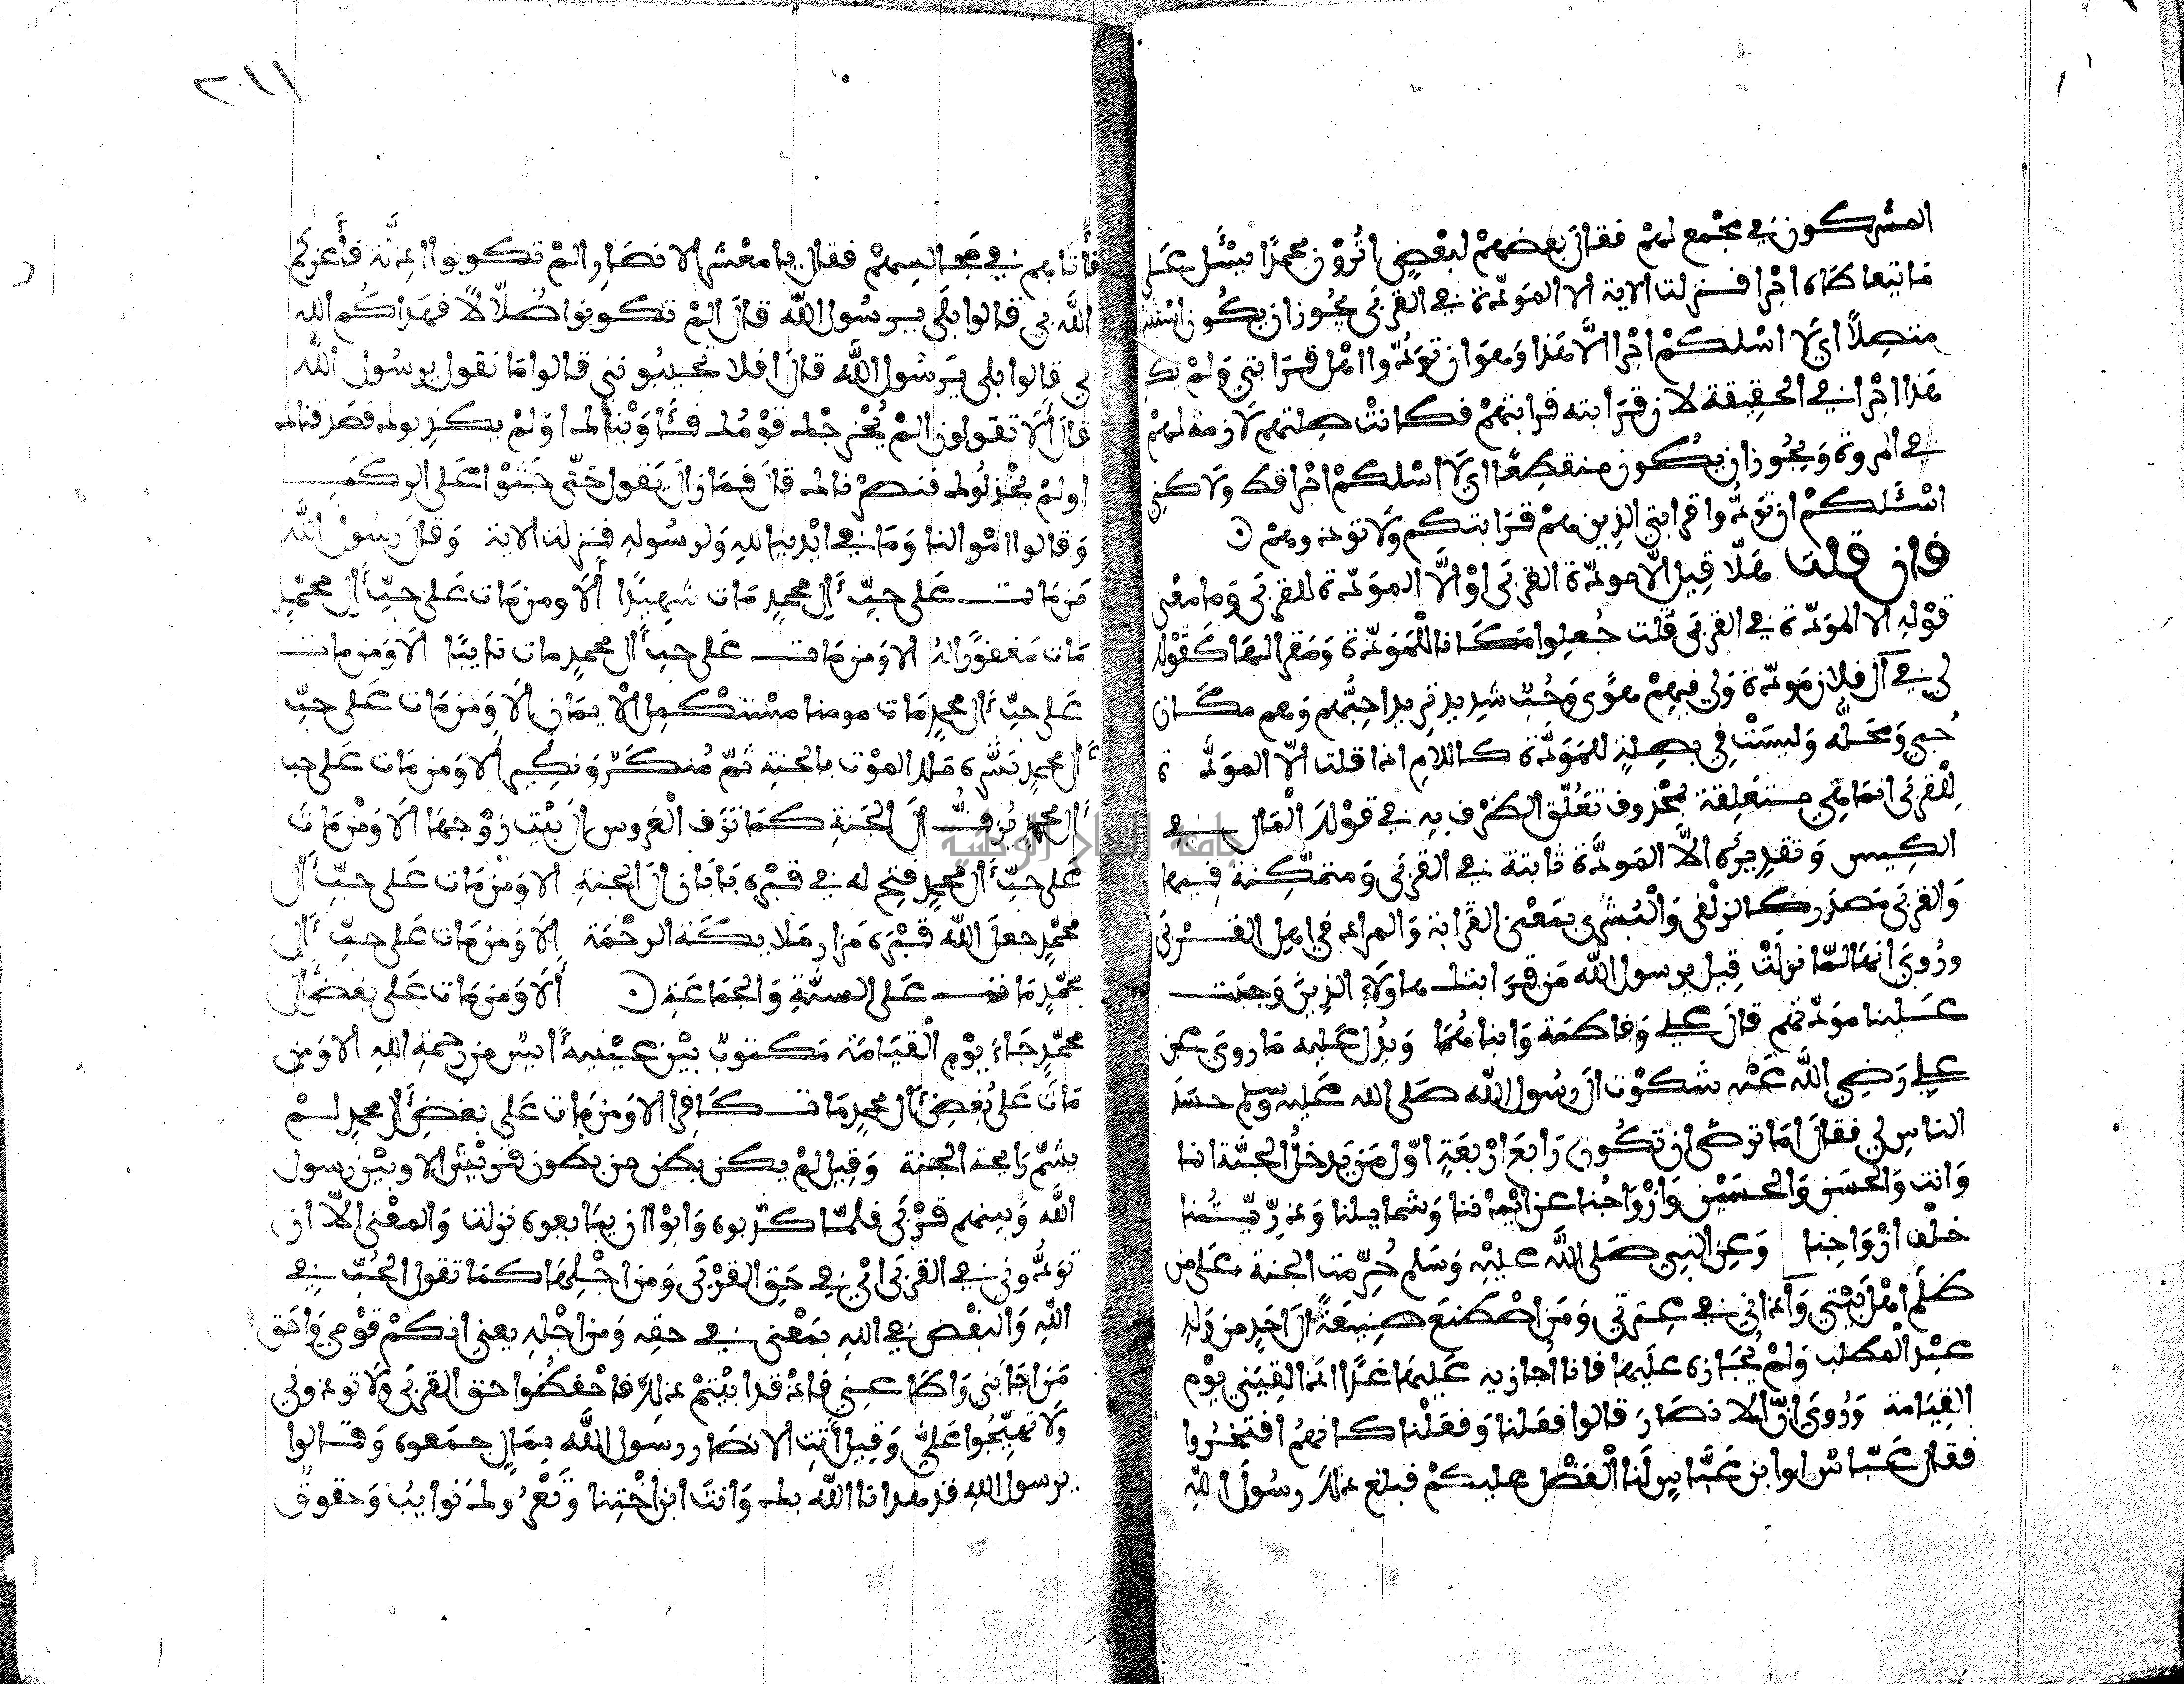 المشركون في مجمع لهم فقال بعضهم لبعض اترون محمدا يسئل على
ما يتعاطاه اجرا فنزلت الاية الا المودة في القربى يجوز ان يكون استثناء
متصلا اي لا اسلكم اجرا الا هذا وهو ان تودوا اهل قرابتي ولم يكن
هذا اجرا في الحقيقة لان قرابته قرابتهم فكانت صلتهم لازمة لهم
في المروة ويجوز ان يكون منقطعا اي لا اسلكم اجرا قط ولاكني
اسئلكم ان تودوا قرابتي الذين هم قرابتكم ولا توذوهم
فان قلت هلا قيل الا مودة القربى او الا المودة للقربى وما معنى
قوله الا المودة في القربى قلت جعلوا مكانا للمودة ومقرا لها كقوله
لي في آل فلان مودة ولي فيهم هوى وحب شديد تريد احبهم وهم مكان
حبي ومحله وليست في بصلة للمودة كاللام اذا قلت الا المودة
للقربى انما هي متعلقة بمحذوف تعلق الظرف به في قولك المال في
الكيس وتقديره الا المودة ثابتة في القربى ومتمكنة فيها
والقربى مصدر كالزلفى والبشرى بمعنى القرابة والمراد في اهل القربى
وروي انها لما نزلت قيل يرسول الله من قرابتك هاولاء الذين وجبت
علينا مودتهم قال علي وفاطمة وابناهما ويدل عليه ما روي عن
علي رضي الله عنه شكوت الى رسول الله صلى الله عليه وسلم حسد
الناس لي فقال اما ترضى ان تكون رابع اربعة اول من يدخل الجنة انا
وانت والحسن والحسين وازواجنا عن ايماننا وشمايلنا وذريتنا
خلف ازواجنا وعن النبي صلى الله عليه وسلم حرمت الجنة على من
ظلم اهل بيتي وآذاني في عترتي ومن اصطنع صنيعة الى احد من ولد
عبد المطلب ولم يجازه عليها فانا اجازيه عليها غدا اذا لقيني يوم
القيامة وروي ان الانصار قالوا فعلنا وفعلنا كانهم افتخروا
فقال عباس او ابن عباس لنا الفضل عليكم فبلغ ذلك رسول الله
٢١١
فأتاهم في مجالسهم فقال يا معشر الانصار الم تكونوا اذلة فأعزكم
الله بي قالوا بلى يرسول الله قال الم تكونوا ضلالا فهداكم الله
بي قالوا بلى يرسول الله قال افلا تجيبونني قالوا ما نقول يرسول الله
قال ألا تقولون الم يخرجك قومك فأويناك اولم يكذبوك فصدقناك
اولم يخذلوك فنصرناك قال فما زال يقول حتى جثوا على الركب
وقالوا اموالنا وما في ايدينا لله ولرسوله فنزلت الاية وقال رسول الله
من مات على حب آل محمد مات شهيدا ألا ومن مات على حب آل محمد
مات مغفورا له الا ومن مات على حب آل محمد مات تايبا الا ومن مات
على حب آل محمد مات مومنا مستكمل الايمان الا ومن مات على حب
آل محمد بشره ملك الموت بالجنة ثم منكر ونكير ألا ومن مات على حب
آل محمد يزف الى الجنة كما تزف العروس الى بيت زوجها الا ومن مات
على حب آل محمد فتح له في قبره بابان الى الجنة الا ومن مات على حب آل
محمد جعل الله قبره مزار ملايكة الرحمة الا ومن مات على حب آل
محمد مات على السنة والجماعة ألا ومن مات على بغض آل
محمد جاء يوم القيامة مكتوب بين عينيه آيس من رحمة الله الا ومن
مات على بغض آل محمد مات كافرا الا ومن مات على بغض آل محمد لم
يشم رايحة الجنة وقيل لم يكن بطن من بطون قريش الا وبين رسول
الله وبينهم قربى فلما كذبوه وابوا ان يبايعوه نزلت والمعنى الا ان
تودوني في القربى اي في حق القربى ومن اجلها كما تقول الحب في
الله والبغض في الله بمعنى في حقه ومن اجله يعني انكم قومي واحق
من اجابني واطاعني فاذ قد ابيتم ذلك فاحفظوا حق القربى ولا توذوني
ولا تهيجوا علي وقيل أتت الانصار رسول الله بمال جمعوه وقالوا
يرسول الله قد هدانا الله بك وانت ابن اختنا وتعروك نوايب وحقوق